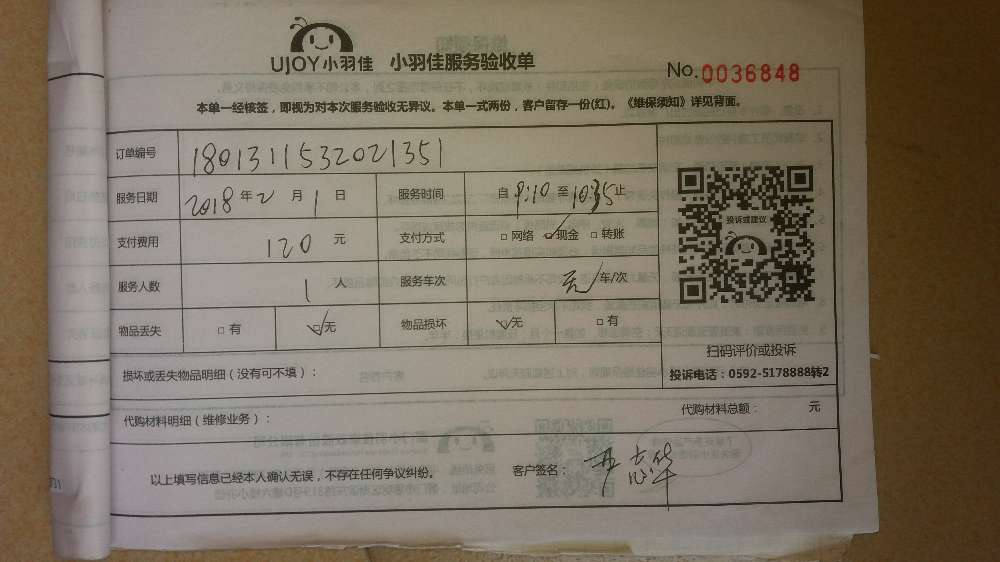 UJOY小羽佳 小羽佳服务验收单
No.0036848
本单一经核签，即视为对本次服务验收无异议。本单一式两份，客户留存一份(红)。《维保须知》详见背面。
订单编号 1801311532021351
服务日期 2018年2月1日 服务时间 自9:10至10:35止
支付费用 120元 支付方式 □网络 ☑现金 □转账
投诉或建议
服务人数 1人 服务车次 无 车/次
物品丢失 □有 ☑无 物品损坏 ☑无 □有
扫码评价或投诉
损坏或丢失物品明细（没有可不填）： 投诉电话：0592-5178888转2
代购材料明细（维修业务）： 代购材料总额： 元
以上填写信息已经本人确认无误，不存在任何争议纠纷。 客户签名： 志华